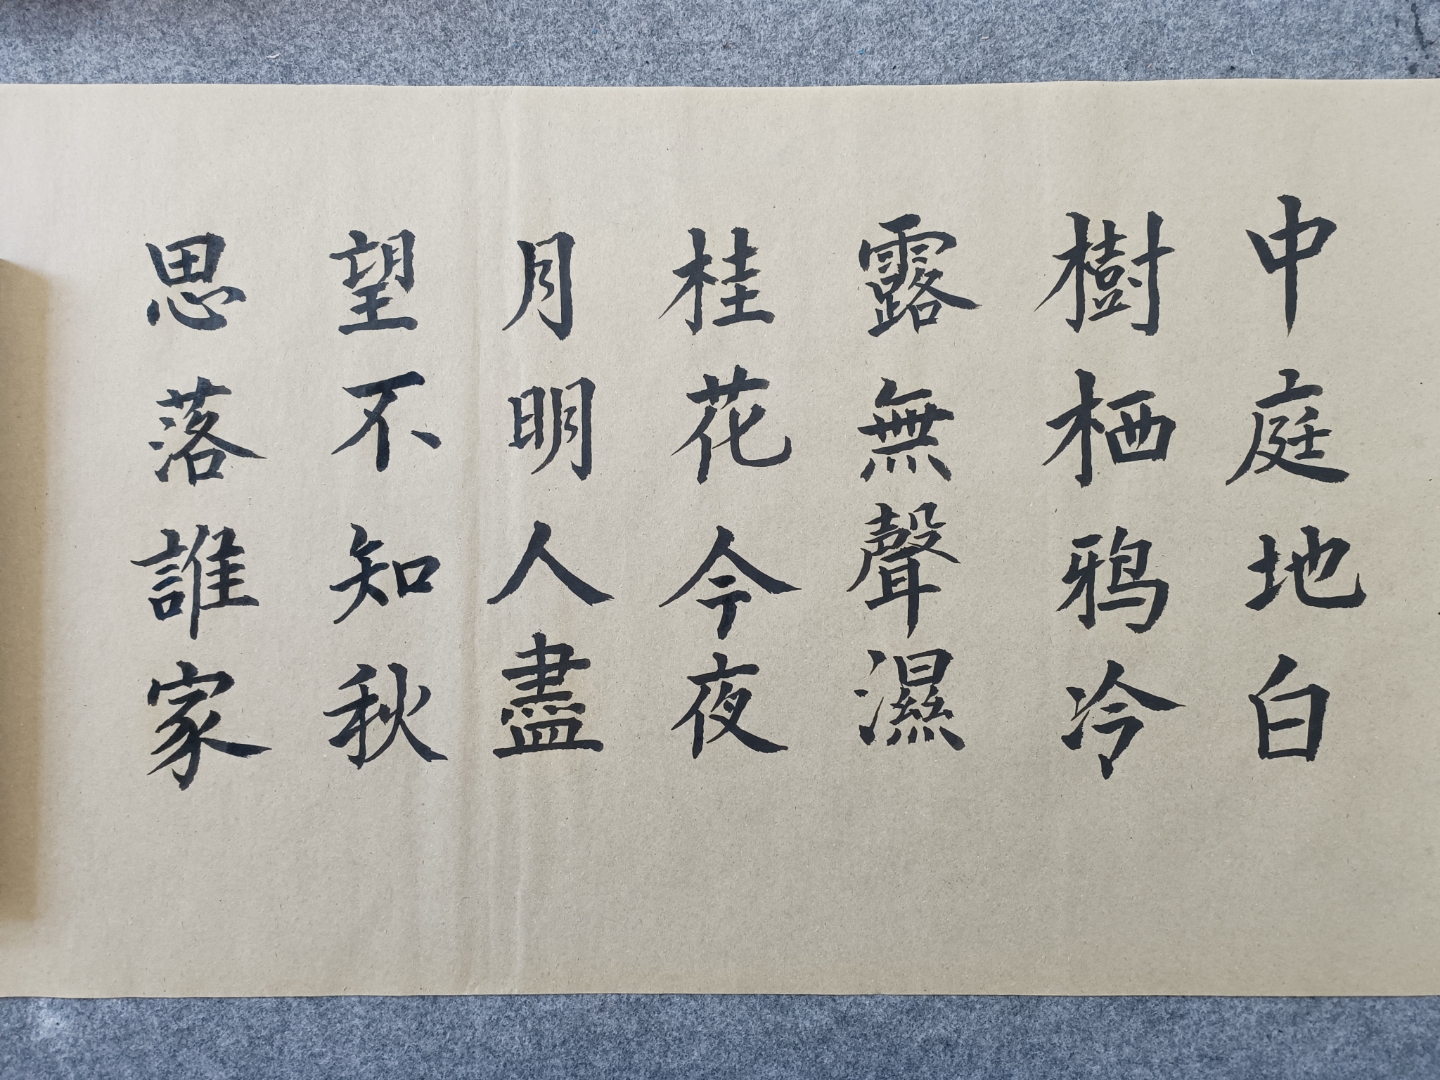 中庭地白
樹栖鴉冷
露無聲濕
桂花今夜
月明人盡
望不知秋
思落誰家